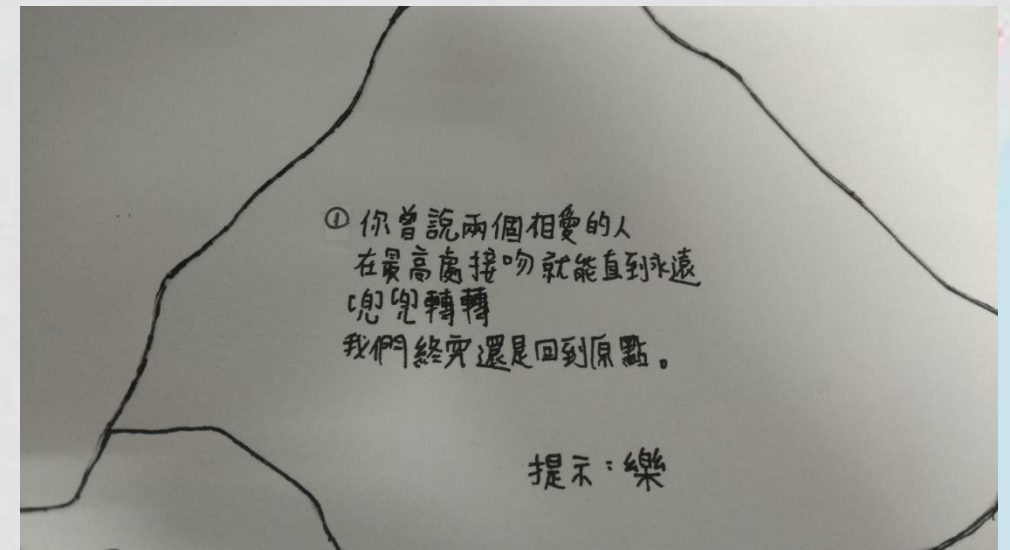 ① 你曾說兩個相愛的人
在最高處接吻就能直到永遠
兜兜轉轉
我們終究還是回到原點。
提示：樂